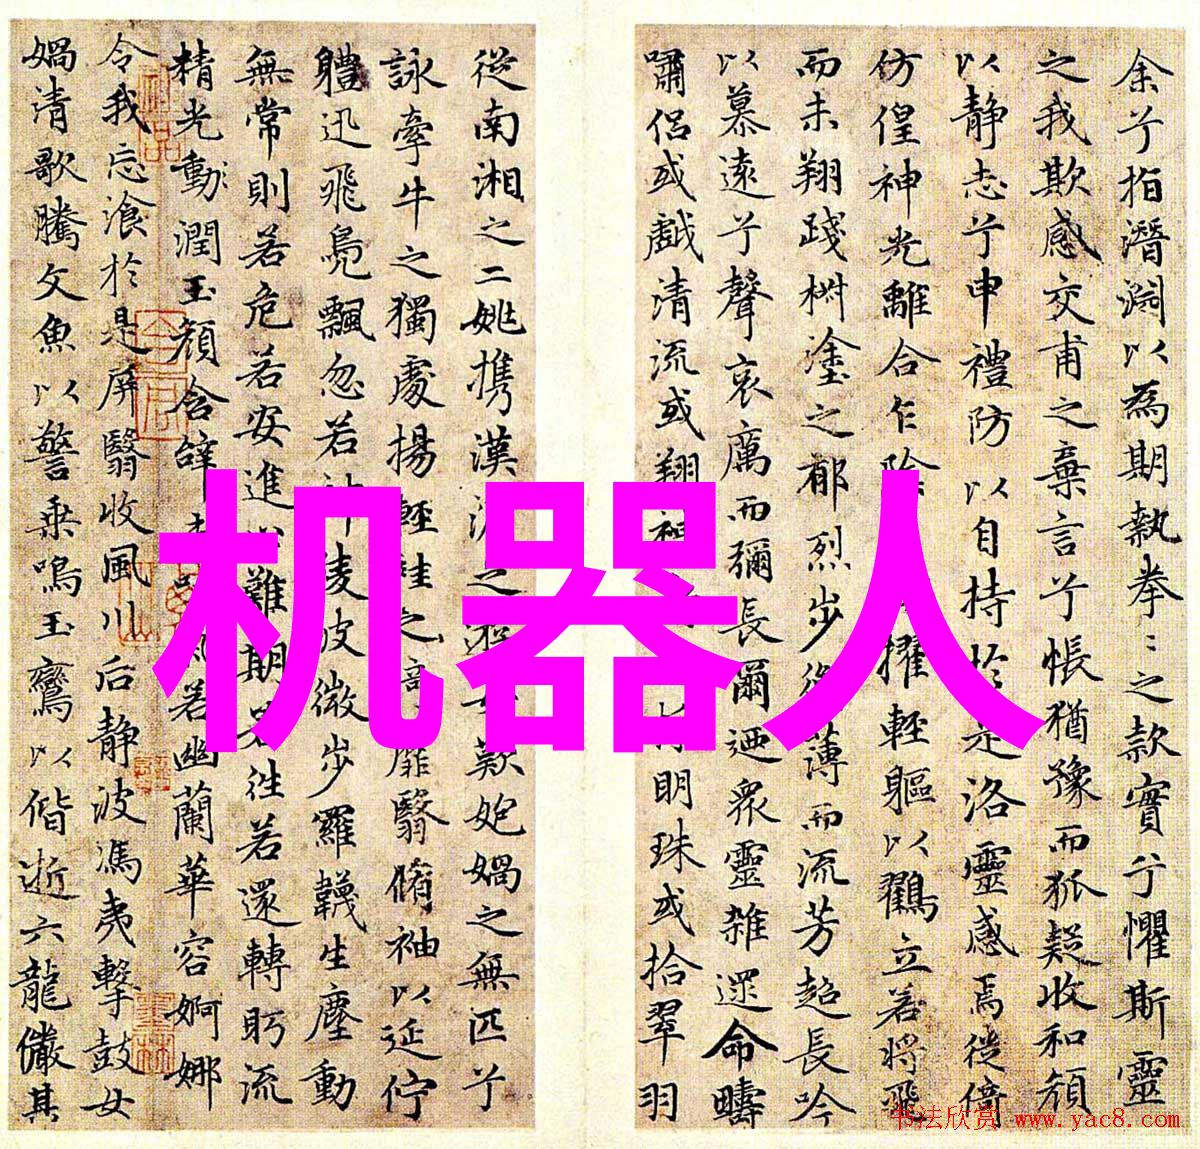 余兮指潛淵以為期執拳〻之款實兮懼斯靈
之我欺感交甫之棄言兮悵猶豫而狐疑收和顏
以静志兮申禮防以自持於是洛靈感焉徙倚
仿偟神光離合乍陰擢輕軀以鶴立若將飛
而未翔踐椒塗之郁烈步衡薄而流芳超長吟
以慕遠兮聲哀厲而彌長爾迺衆靈雜遝命疇
嘯侣或戲清流或翔神明珠或拾翠羽
從南湘之二姚携漢濱之女歎匏媧之無匹兮
詠牽牛之獨處揚輕袿之靡翳脩袖以延佇
體迅飛鳧飄忽若神淩波微步羅韈生塵動
無常則若危若安進止難期若往若還轉眄流
精光動潤玉顏含辭未氣若幽蘭華容婀娜
令我忘飡於是屏翳收風川后静波馮夷擊鼓女
媧清歌騰文魚以警乘鳴玉鸞以偕逝六龍儼其
机器人
书法欣赏 www.yac8.com